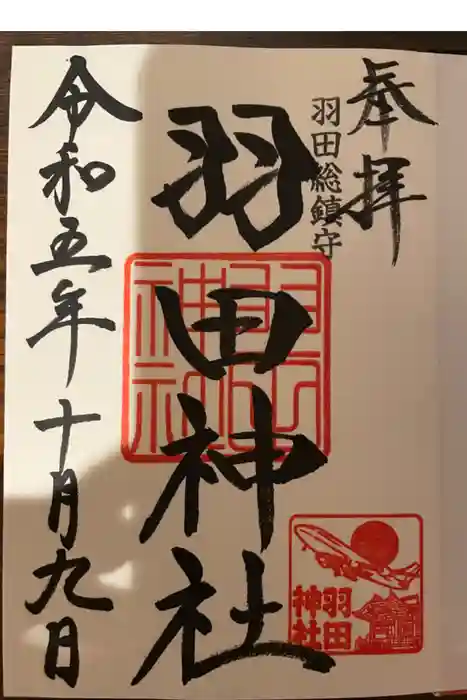 奉拝
羽田総鎮守
羽田神社
令和五年十月九日
羽田神社
羽田
神社